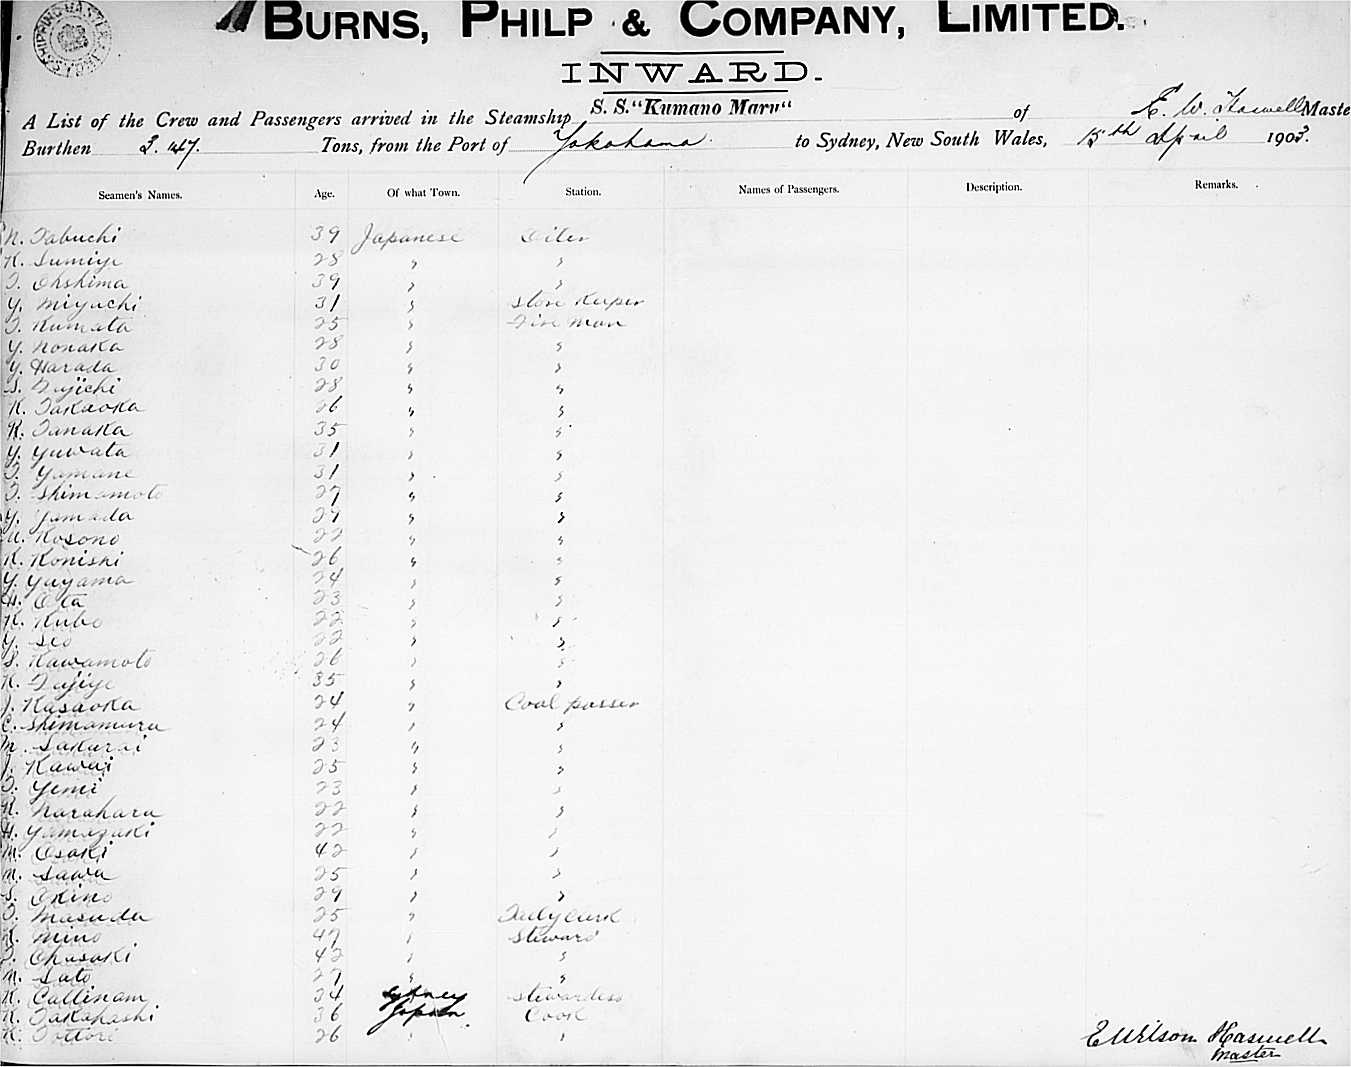 BURNS, PHILP & COMPANY, LIMITED.
INWARD.
A List of the Crew and Passengers arrived in the Steamship S. S. "Kumano Maru" of E. W. Haswell Maste
Burthen 3.147. Tons, from the Port of Yokohama to Sydney, New South Wales, 15th April 1903.
Seamen's Names. Age. Of what Town. Station. Names of Passengers. Description. Remarks.
N. Tabuchi 39 Japanese Oiler
K. Sumiye 28 " "
T. Ohshima 39 " "
Y. Miyachi 31 " Store Keeper
T. Kumata 25 " Fire Man
Y. Nonaka 28 " "
Y. Harada 30 " "
S. Fujichi 28 " "
K. Takaoka 26 " "
K. Tanaka 35 " "
Y. Yuwata 31 " "
T. Yamane 31 " "
T. Shimamoto 27 " "
Y. Yamada 27 " "
U. Kosono 22 " "
K. Konishi 26 " "
Y. Yuyama 24 " "
H. Ota 23 " "
K. Kubo 22 " "
Y. Seo 22 " "
S. Kawamoto 26 " "
K. Fujiye 35 " "
J. Kasaoka 24 " Coal passer
C. Shimamura 24 " "
M. Sakurai 23 " "
J. Kawai 25 " "
T. Yemi 23 " "
K. Narahara 22 " "
H. Yamazaki 22 " "
M. Osaki 42 " "
M. Sawa 25 " "
S. Okino 29 " "
T. Masuda 25 " Tally Clerk
K. Mino 47 " Steward
T. Chasaki 42 " "
M. Sato 27 " "
K. Callinam 34 Sydney Stewardess
K. Takahashi 36 Japan Cook
K. Tottori 26 " "
E Wilson Haswell
Master